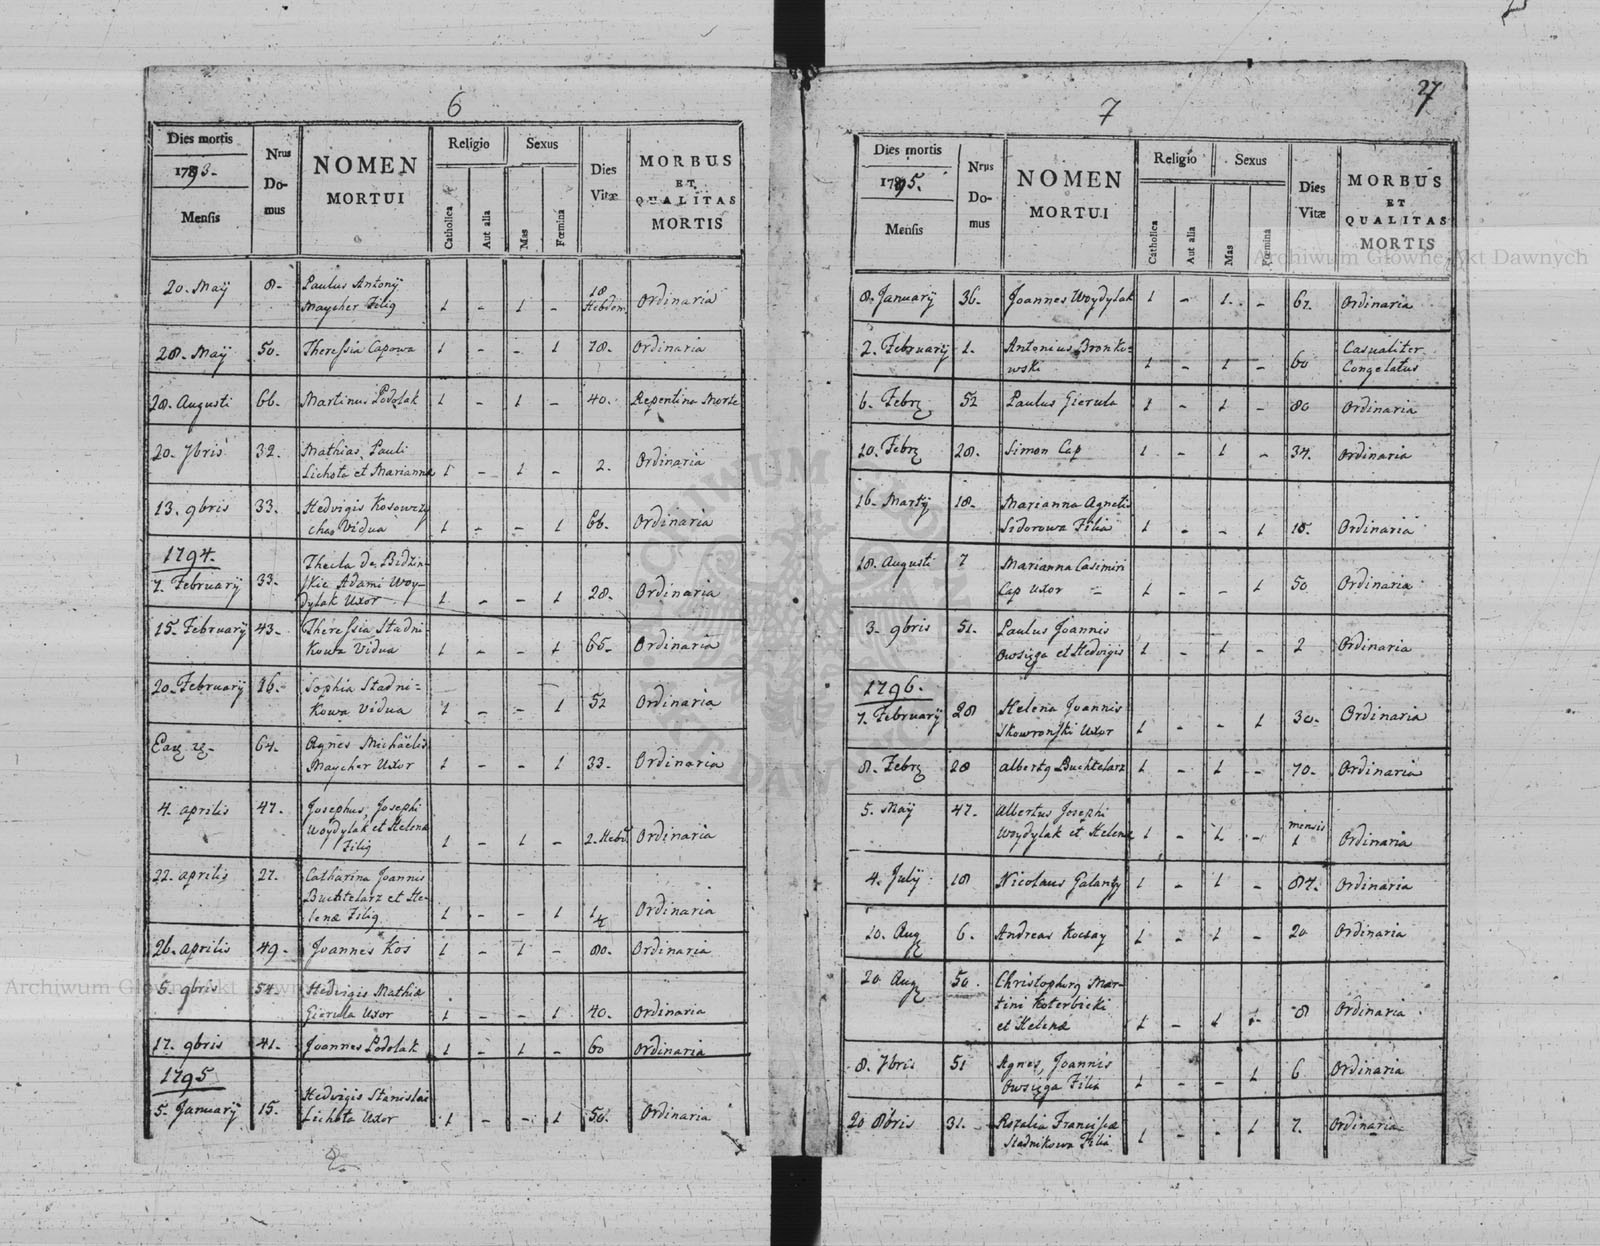 27
6
Dies mortis
1793.
Mensis
Nrus
Do-
mus
NOMEN
MORTUI
Religio
Catholica
Aut alia
Sexus
Mas
Fœmina
Dies
Vitæ
MORBUS
ET
QUALITAS
MORTIS
20. Maÿ 8. Paulus Antonÿ
Maycher Filig 1 - 1 - 18 Hebdom Ordinaria
28. Maÿ 50. Theressia Capowa 1 - - 1 78. Ordinaria
28. Augusti 66. Martinus Podolak 1 - 1 - 40. Repentina Morte
20. 7bris 32. Mathias Pauli
Lichota et Marianna 1 - 1 - 2. Ordinaria
13. 9bris 33. Hedvigis Kosowczy
cha Vidua 1 - - 1 66. Ordinaria
1794.
7. Februarÿ 33. Thecla de Bidzin-
skie Adami Woy-
dylak Uxor 1 - - 1 28. Ordinaria
15. Februarÿ 43. Theressia Stadni-
kowa Vidua 1 - - 1 65. Ordinaria
20. Februarÿ 16. Sophia Stadni=
kowa Vidua 1 - - 1 52 Ordinaria
64. Agnes Michaëlis
Maycher Uxor 1 - - 1 33. Ordinaria
4. aprilis 47. Josephus Josephi
Woÿdÿlak et Helena
Filig 1 - 1 - 2. Hebd Ordinaria
22. aprilis 27. Catharina Joannis
Buchtelarz et He-
lenæ Filig 1 - - 1 Ordinaria
26. aprilis 49. Joannes Kos 1 - 1 - 80. Ordinaria
5. 9bris 54. Hedvigis Mathiæ
Gierula Uxor 1 - - 1 40. Ordinaria
17. 9bris 41. Joannes Podolak 1 - 1 - 60 Ordinaria
1795
5. Januarÿ 15. Hedvigis Stanislai
Lichota Uxor 1 - - 1 50. Ordinaria
7
Dies mortis
1795.
Mensis
Nrus
Do-
mus
NOMEN
MORTUI
Religio
Catholica
Aut alia
Sexus
Mas
Fœmina
Dies
Vitæ
MORBUS
ET
QUALITAS
MORTIS
8. Januarÿ 36. Joannes Woydylak 1 - 1. - 67. Ordinaria
2. Februarÿ 1. Antonius Bronko= Casualiter
wski 1 - 1 - 60 Congelatus
6. Febr 52 Paulus Gierula 1 - 1 - 80 Ordinaria
20. Febr 28. Simon Cap 1 - 1 - 34. Ordinaria
16. Martÿ 18. Marianna Agnetis
Sidorowa Filia 1 - - 1 18. Ordinaria
28. Augusti 7 Marianna Casimiri
Cap Uxor = 1 - - 1 50 Ordinaria
3. 9bris 51. Paulus Joannis
Owsięga et Hedvigis 1 - 1 - 2 Ordinaria
1796.
7. Februarÿ 28 Helena Joannis
Skowronski Uxor 1 - - 1 30. Ordinaria
8. Febr 28 Albertg Buchtelarz 1 - 1 - 70. Ordinaria
5. Maÿ 47. Albertus Josephi
Woydylak et Helenæ 1 - 1 - mensis 1 Ordinaria
4. Julÿ 18 Nicolaus Galanty 1 - 1 - 87. Ordinaria
20. Aug 6. Andreas Kocsay 1 - 1 - 20 Ordinaria
20 Aug 50. Christophorg Mar-
tini Koterbicki
et Helenæ 1 - 1 - 8 Ordinaria
8. 7bris 51 Agnes, Joannis
Owsięga Filia 1 - - 1 6 Ordinaria
20 8bris 31. Rozalia Francisæ
Stadnikowa Filia 1 - - 1 7. Ordinaria
2
Archiwum Główne Akt Dawnych
Archiwum Główne Akt Dawnych
ARCHIWUM GŁÓWNE AKT DAWNYCH